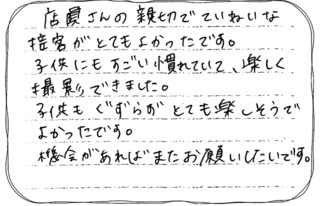 店員さんの親切でていねいな
接客がとてもよかったです。
子供にもすごい慣れていて、楽しく
撮影できました。
子供もぐずらずとても楽しそうで
よかったです。
機会があればまたお願いしたいです。